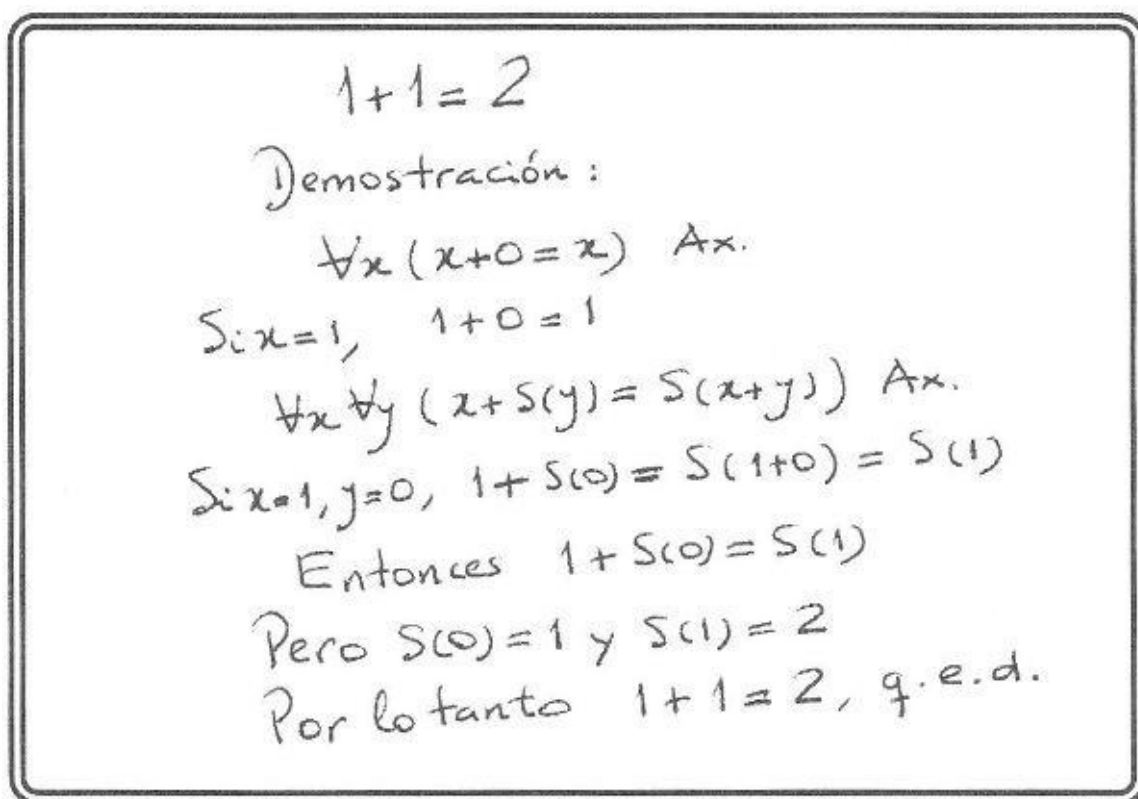 1+1=2
Demostración:
∀x(x+0=x) Ax.
Si x=1, 1+0=1
∀x∀y(x+S(y)=S(x+y)) Ax.
Si x=1, y=0, 1+S(0)=S(1+0)=S(1)
Entonces 1+S(0)=S(1)
Pero S(0)=1 y S(1)=2
Por lo tanto 1+1=2, q.e.d.